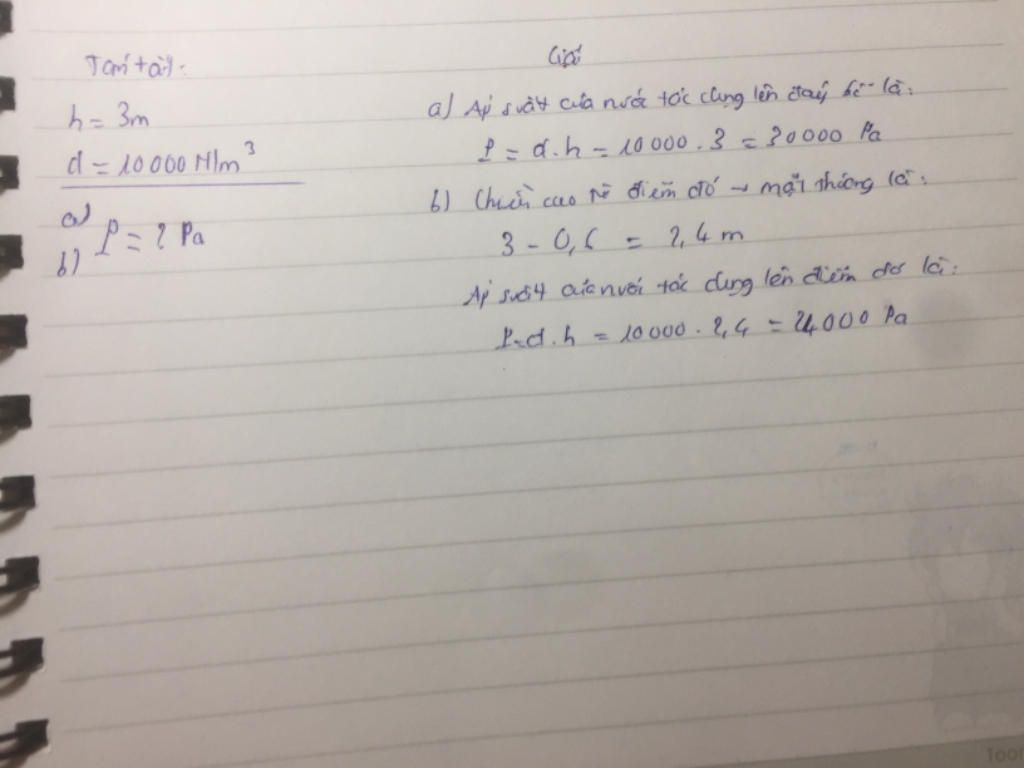 Tóm tắt:
h = 3m
d = 10000 N/m³
a)
P = ? Pa
b)
Giải
a) Áp suất của nước tác dụng lên đáy bể là:
P = d.h = 10000 . 3 = 30000 Pa
b) Chiều cao từ điểm đó → mặt thoáng là:
3 - 0,6 = 2,4 m
Áp suất của nước tác dụng lên điểm đó là:
P = d.h = 10000 . 2,4 = 24000 Pa